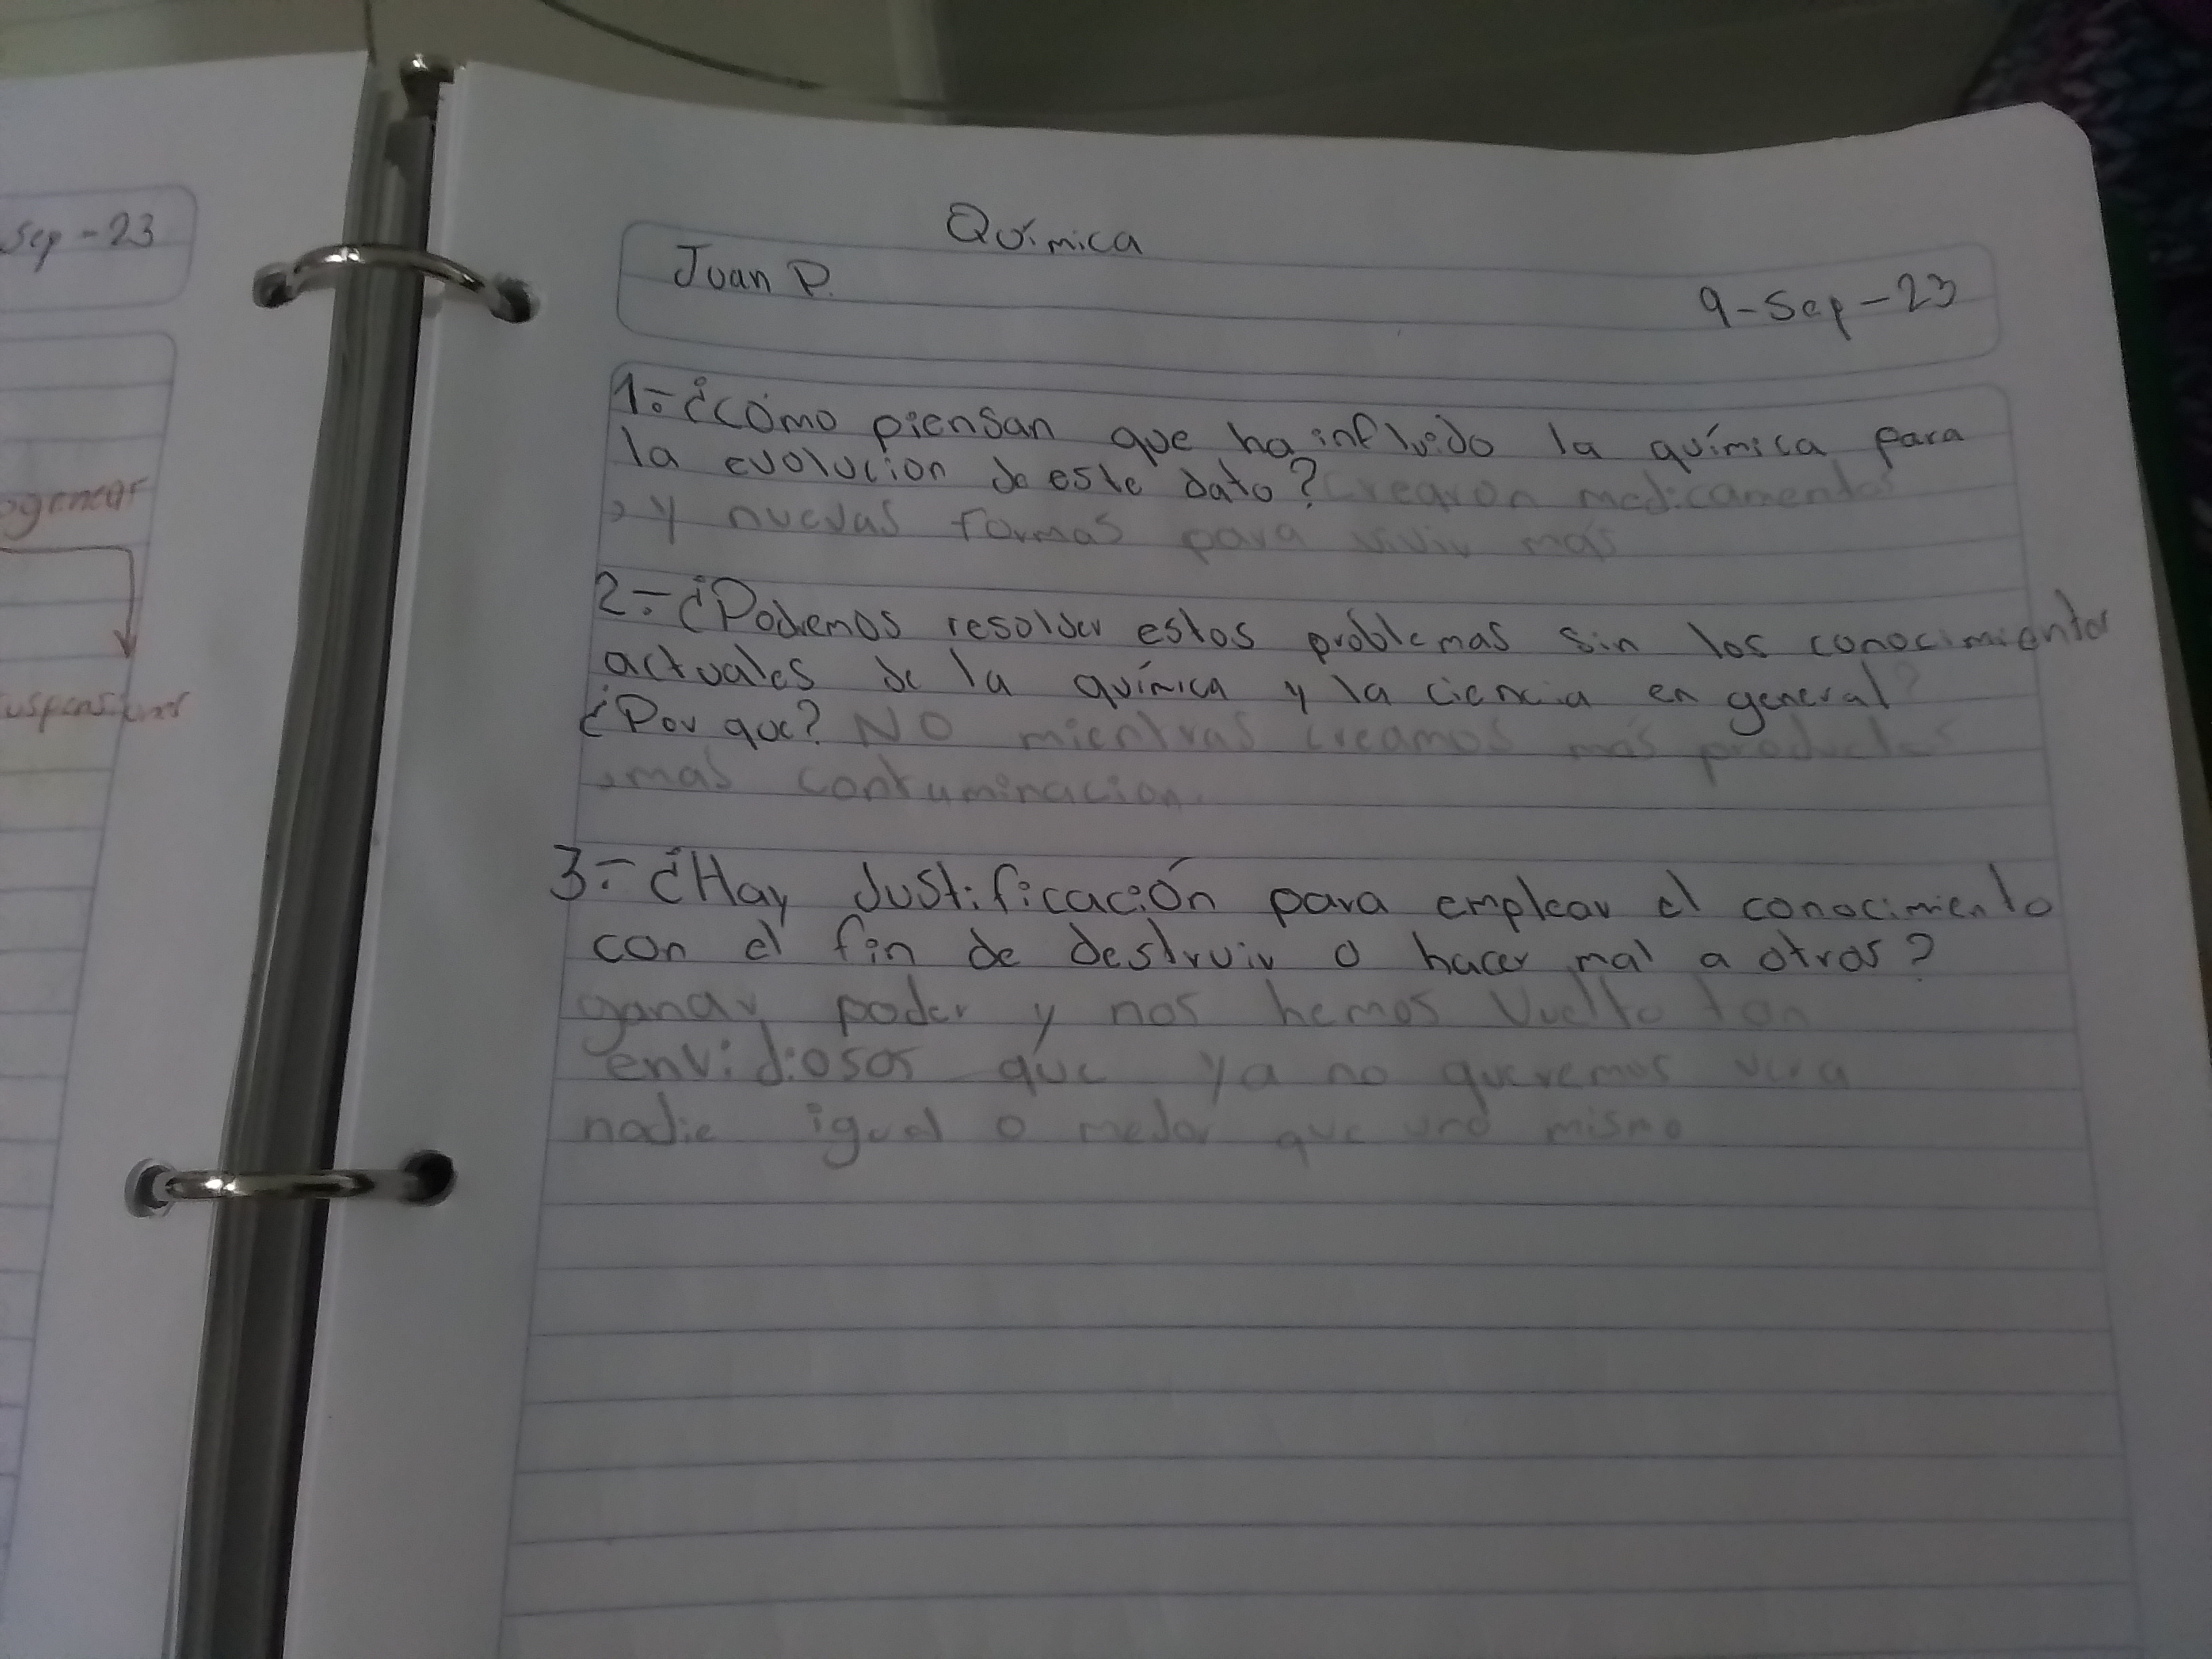 Sep-23
Química
Juan P.
9-Sep-23
1.-¿cómo piensan que ha influido la química para
la evolucion de este dato? Crearon medicamentos
y nuevas formas para vivir mas
2.-¿Podemos resolver estos problemas sin los conocimientos
actuales de la química y la ciencia en general?
¿Por que? NO mientras creamos mas productos
mas contaminacion.
3.-¿Hay Justificación para emplear el conocimiento
con el fin de destruir o hacer mal a otros?
ganar poder y nos hemos vuelto tan
envidiosos que ya no queremos ver a
nadie igual o mejor que uno mismo